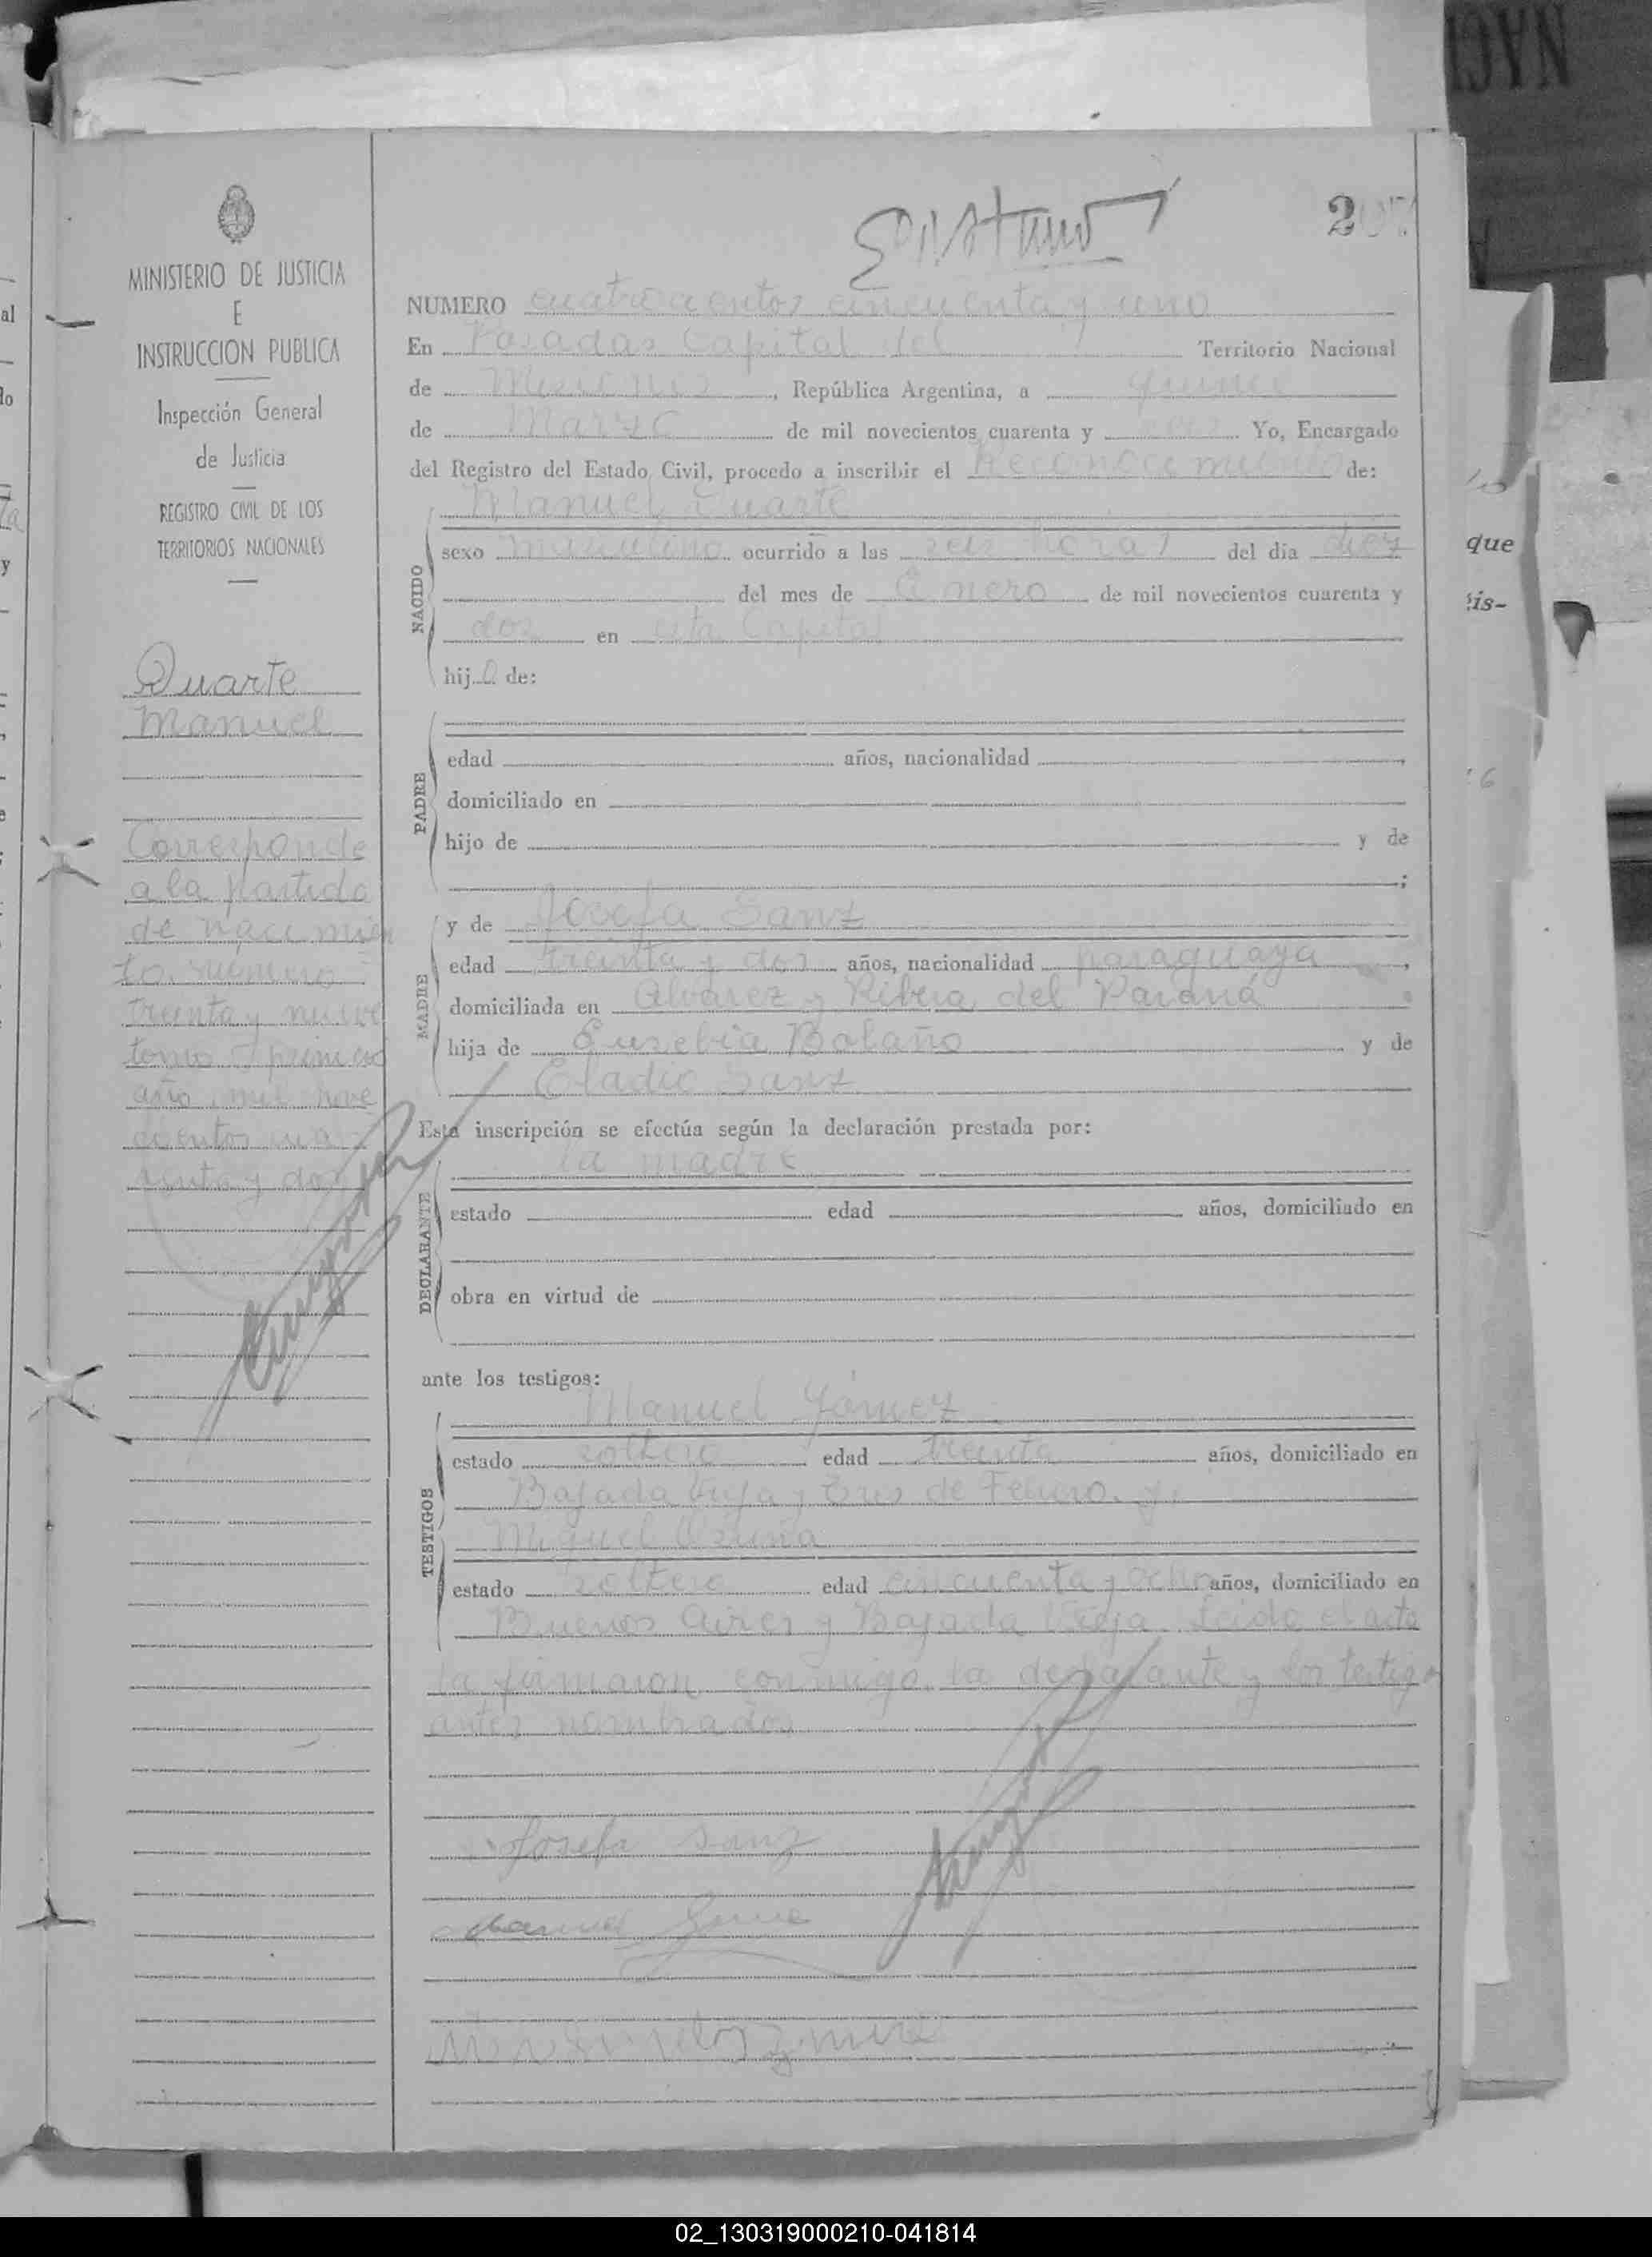 MINISTERIO DE JUSTICIA
E
INSTRUCCION PUBLICA
Inspección General
de Justicia
REGISTRO CIVIL DE LOS
TERRITORIOS NACIONALES
Duarte
Manuel
Corresponde
a la partida
de nacimien
to número
treinta y nueve
tomo primero
año mil nove
cientos cua
renta y dos
2
NUMERO cuatrocientos cincuenta y uno
En Posadas Capital del Territorio Nacional
de Misiones, República Argentina, a quince
de Marzo de mil novecientos cuarenta y seis Yo, Encargado
del Registro del Estado Civil, procedo a inscribir el Reconocimiento de:
Manuel Duarte
NACIDO
sexo masculino ocurrido a las seis horas del dia diez
del mes de Enero de mil novecientos cuarenta y
dos en esta Capital
hijo de:
PADRE
edad años, nacionalidad
domiciliado en
hijo de y de
;
MADRE
y de Josefa Sanz
edad treinta y dos años, nacionalidad paraguaya,
domiciliada en Alvarez y Ribera del Paraná
hija de Eusebia Bolaño y de
Eladio Sanz
Esta inscripción se efectúa según la declaración prestada por:
la madre
DECLARANTE
estado edad años, domiciliado en
obra en virtud de
ante los testigos:
TESTIGOS
Manuel Gómez
estado soltero edad treinta años, domiciliado en
Bajada Vieja y Tres de Febrero y
Miguel
estado soltero edad cincuenta y ocho años, domiciliado en
Buenos Aires y Bajada Vieja. Leido el acta
la firmaron conmigo la declarante y los testigos
antes nombrados
Josefa Sanz
Manuel Gomez
al
lo
y
que
sis-
02_130319000210-041814